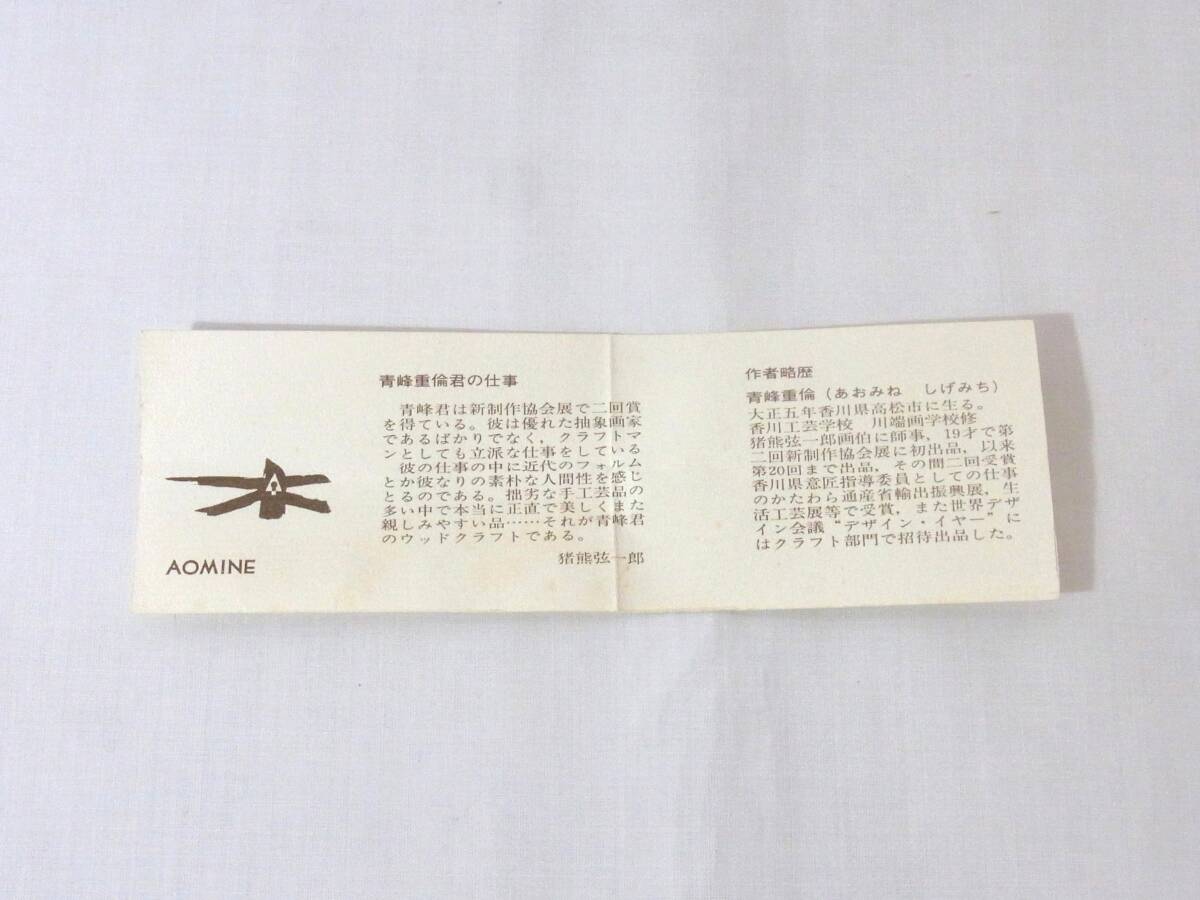 青峰重倫君の仕事
青峰君は新制作協会展で二回賞
を得ている。彼は優れた抽象画家
であるばかりでなく，クラフトマ
ンとしても立派な仕事をしている
彼の仕事の中に近代のフォルム
とか彼なりの素朴な人間性を感じ
とるのである。拙劣な手工芸品の
多い中で本当に正直で美しくまた
親しみやすい品……それが青峰君
のウッドクラフトである。
猪熊弦一郎
AOMINE
作者略歴
青峰重倫（あおみね　しげみち）
大正五年香川県高松市に生る。
香川工芸学校　川端画学校修
猪熊弦一郎画伯に師事，19才で第
二回新制作協会展に初出品，以来
第20回まで出品，その間二回受賞
香川県意匠指導委員としての仕事
のかたわら通産省輸出振興展，生
活工芸展等で受賞，また世界デザ
イン会議“デザイン・イヤー”に
はクラフト部門で招待出品した。